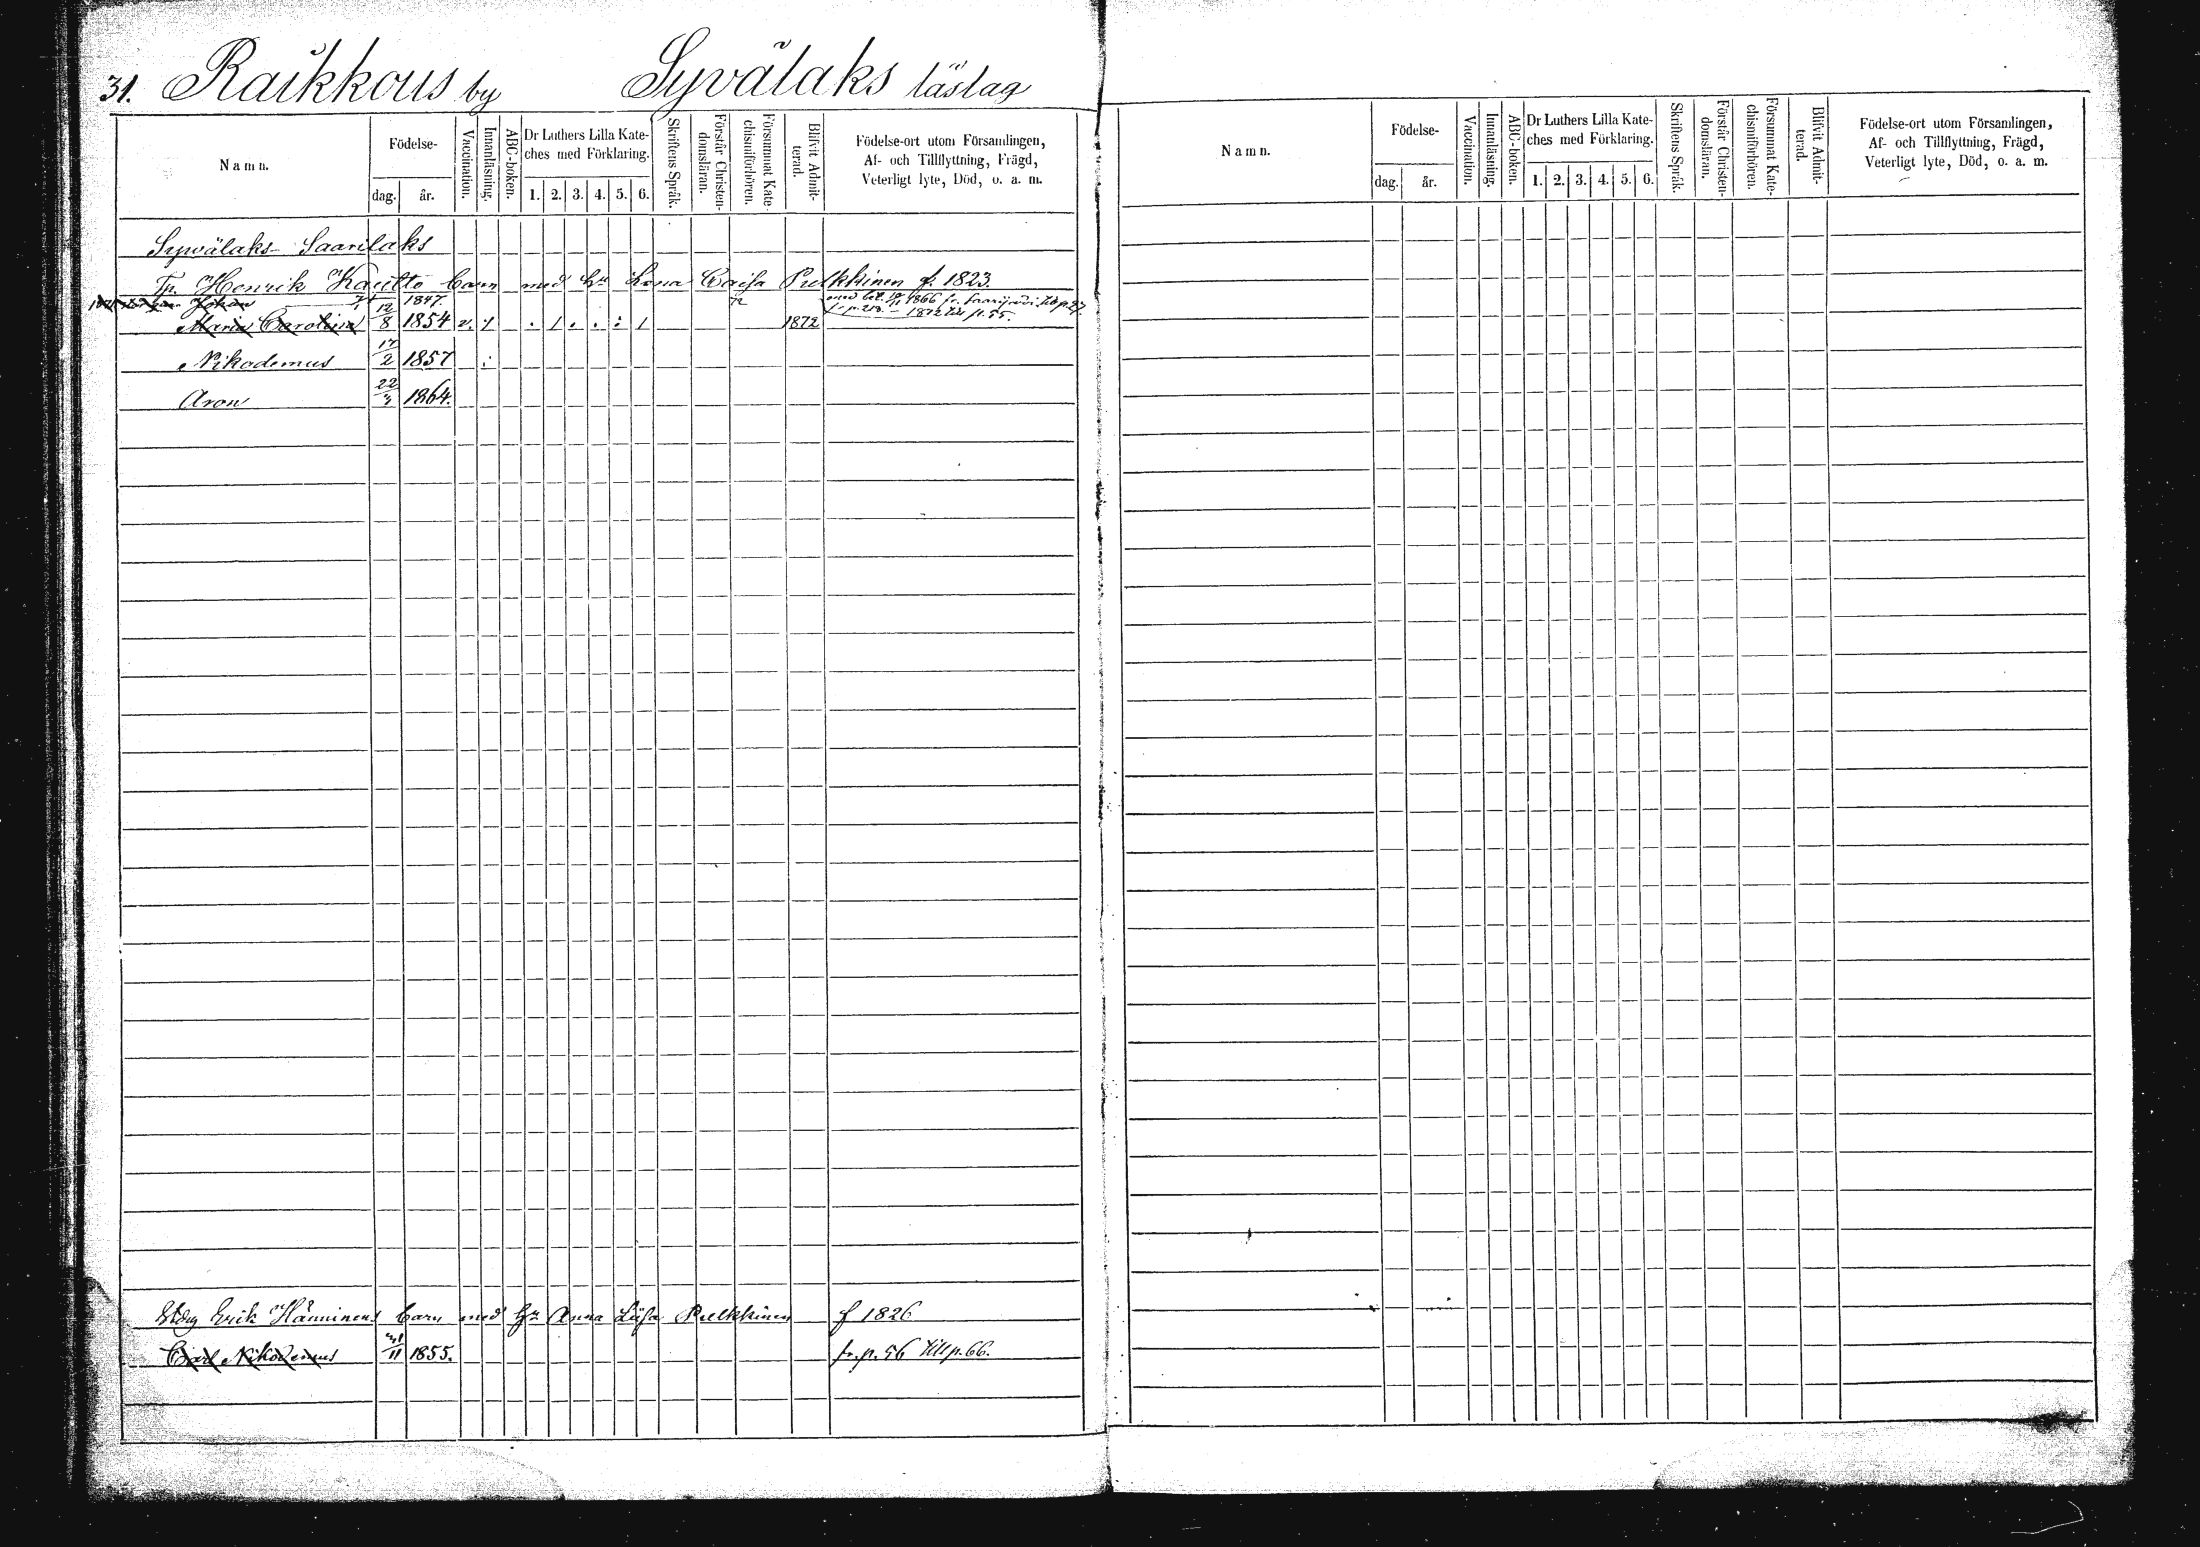 31. Raikkous by Syvälaks läslag
Namn.
Födelse-
dag. år.
Vaccination.
Innanläsning.
ABC-boken.
Dr Luthers Lilla Kate-
ches med Förklaring.
1. 2. 3. 4. 5. 6.
Skriftens Språk.
Förstår Christen-
domsläran.
Försummat Kate-
chismiförhören.
Blifvit Admit-
terad.
Födelse-ort utom Församlingen,
Af- och Tillflyttning, Frägd,
Veterligt lyte, Död, o. a. m.
Syvälaks Saarilaks
Tp. Henrik Kautto barn med h:u Lena Caisa Pulkkinen f. 1823.
Johan 1847. med bet. 1866 fr.
Maria Carolina 12/8 1854 v. 1872 p. 55.
Nikodemus 17/2 1857
Aron 22 1864.
Erik Hänninens barn med h:u Anna Lisa Pulkkinen f 1826
Carl Nikodemus 11 1855. fr. p. 56 till p. 66.
Namn.
Födelse-
dag. år.
Vaccination.
Innanläsning.
ABC-boken.
Dr Luthers Lilla Kate-
ches med Förklaring.
1. 2. 3. 4. 5. 6.
Skriftens Språk.
Förstår Christen-
domsläran.
Försummat Kate-
chismiförhören.
Blifvit Admit-
terad.
Födelse-ort utom Församlingen,
Af- och Tillflyttning, Frägd,
Veterligt lyte, Död, o. a. m.